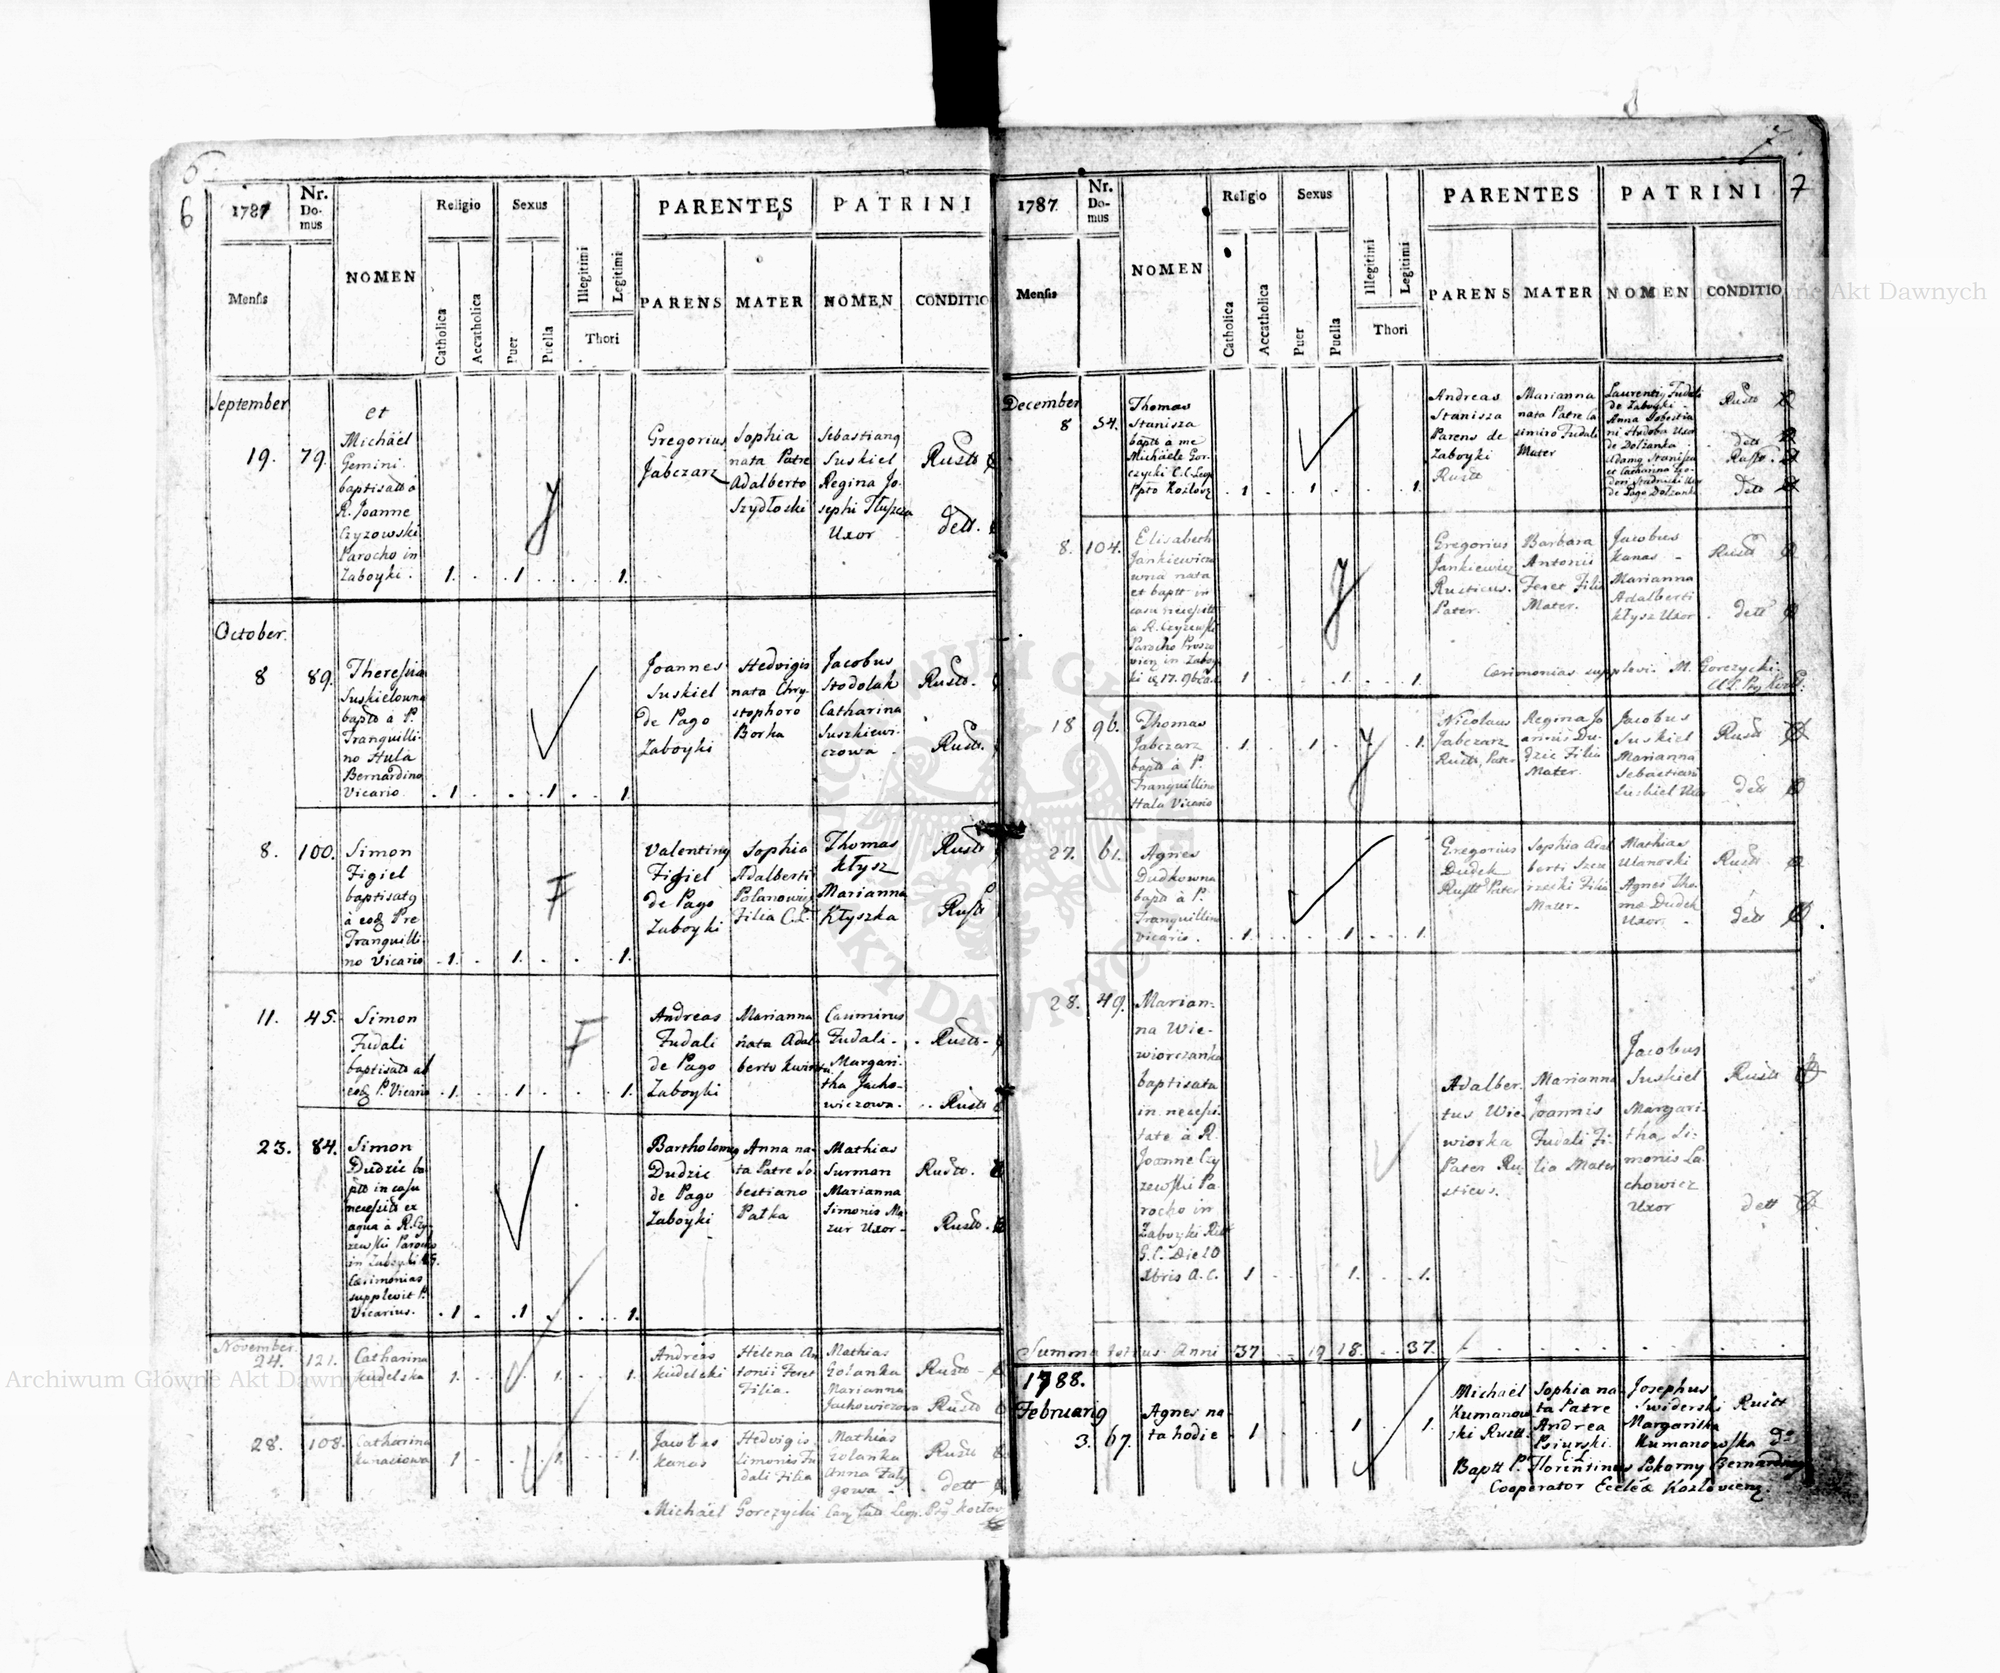 6
6
1787
Nr.
Do-
mus
NOMEN
Religio
Sexus
Illegitimi
Legitimi
PARENTES
PATRINI
Mensis
Catholica
Accatholica
Puer
Puella
Thori
PARENS
MATER
NOMEN
CONDITIO
September
19. 79.
et
Michäel
Gemini
baptisati à
R. Joanne
Czyzowski
Parocho in
Zaboyki.
1. 1. 1.
Gregorius
Jabczarz
Sophia
nata Patre
Adalberto
Szydłoski
Sebastiang
Suskiel
Regina Jo-
sephi Tłuszcza
Uxor
Rusto
dett.
October.
8 89.
Theressia
Suskielowna
bapto à P.
Tranquilli-
no Hula
Bernardino
Vicario.
1 1. 1.
Joannes
Suskiel
de Pago
Zaboyki
Hedvigis
nata Chry-
stophoro
Borka
Jacobus
Stodolak
Catharina
Suszkiewi-
czowa
Rusto.
Rusto.
8. 100.
Simon
Figiel
baptisatg
à eod Pre
Tranquilli-
no Vicario
1. 1. 1.
Valenting
Figiel
de Pago
Zaboyki
Sophia
Adalberti
Polanowicz
Filia C. L.
Thomas
Kłysz
Marianna
Kłyszka
Rusto
Rusto
11. 45.
Simon
Fudali
baptisato ab
eod P. Vicario
1. 1. 1.
Andreas
Fudali
de Pago
Zaboyki
Marianna
nata Adal-
berto
Casimirus
Fudali
Margari-
tha Jacho-
wiczowa.
Rusto
Rusto
23. 84.
Simon
Dudzic ba-
pto in casu
necessito ex
aqua à R. Czy-
zewski Parocho
in Zaboyki
Cærimonias
supplevit P.
Vicarius.
1 1 1.
Bartholomeg
Dudzic
de Pago
Zaboyki
Anna na-
ta Patre Se-
bestiano
Pałka
Mathias
Surman
Marianna
Simonis Ma-
zur Uxor
Rusto.
Rusto.
November.
24. 121.
Catharina
Kudelska
1. 1. 1.
Andreas
Kudelski
Helena An-
tonii Feret
Filia.
Mathias
Golanka
Marianna
Jachowiczowa
Rusto
Rusto
28. 108.
Catharina
Kanasiowa
1 1. 1.
Jacobus
Kanas
Hedvigis
Simonis Fu-
dali Filia
Mathias
Golanka
Anna
Rusto
dett
Michaël Gorczycki
7
7
1787
Nr.
Do-
mus
NOMEN
Religio
Sexus
Illegitimi
Legitimi
PARENTES
PATRINI
Mensis
Catholica
Accatholica
Puer
Puella
Thori
PARENS
MATER
NOMEN
CONDITIO
December
8 54.
Thomas
Stanisza
bapto à me
Michäele Gor-
czycki
1 1 1.
Andreas
Stanisza
Parens de
Zaboyki
Rusto
Marianna
nata Patre Ca-
simiro Fudali
Mater
Laurentij Fudali
de Zaboyki
Anna Sebestia-
ni Uxor
de Dołzanka
Adamo Stanisza
et Catharina
Uxor
de Pago Dołzanka
Rusto
dett
Rusto.
dett
8. 104.
Elisabeth
Jankiewiczo-
wna nata
et baptt in
casu necessitt
a R. Czyzewski
Parocho
in Zaboy-
ki
1 1. 1.
Gregorius
Jankiewicz
Rusticus.
Pater.
Barbara
Antonii
Feret Filia
Mater.
Jacobus
Kanas
Marianna
Adalberti
Kłysz Uxor
Rusto
dett
Cærimonias supplevi. M. Gorczycki
18 96.
Thomas
Jabczarz
bapto à P.
Tranquillino
Hala Vicario
1. 1 1.
Nicolaus
Jabczarz
Rustt, Pater
Regina Jo-
annis Du-
dzic Filia
Mater.
Jacobus
Suskiel
Marianna
Sebastiani
Suskiel Uxor
Rusto
dett
27. 61.
Agnes
Dudkowna
bapto à P.
Tranquillino
Vicario.
1. 1. 1.
Gregorius
Dudek
Rustt Pater
Sophia Adal-
berti
Filia
Mater
Mathias
Ulanoski
Agnes Tho-
mæ Dudek
Uxor.
Rusto
dett
28. 49.
Marian-
na Wie-
wiorczanka
baptisata
in necessi-
tate à R.
Joanne Czy-
zewski Pa-
rocho in
Zaboyki
Die 20
Xbris A. C.
1 1. 1.
Adalber-
tus Wie-
wiorka
Pater Ru-
sticus.
Marianna
Joannis
Fudali Fi-
lia Mater
Jacobus
Suskiel
Margari-
tha Si-
monis La-
chowicz
Uxor
Rusto
dett
Summa totius Anni 37 19 18. 37.
1788.
Februarg
3. 67.
Agnes na-
ta hodie
1 1 1.
Michaël
Kumanow-
ski Rustt.
Sophia na-
ta Patre
Andrea
Psiurski
Josephus
Swiderski
Margaritha
Kumanowska
Rustt
Baptt P. Florentinus Pokorny Bernarding
Cooperator Eccleæ Kozłovieng.
Archiwum Główne Akt Dawnych